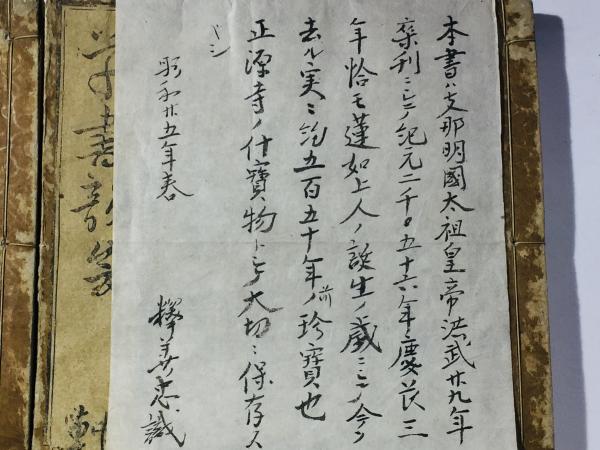 本書ハ支那明國太祖皇帝洪武廿九年
刊ニシテ紀元二千〇五十六年應永三
年恰モ蓮如上人ノ誕生ノ歳ニシテ今ヲ
去ル実ニ約五百五十年前ノ珍寶也
正源寺ノ什寶物トシテ大切ニ保存ス
ベシ
昭和廿五年春
釋善忠識
草書韻